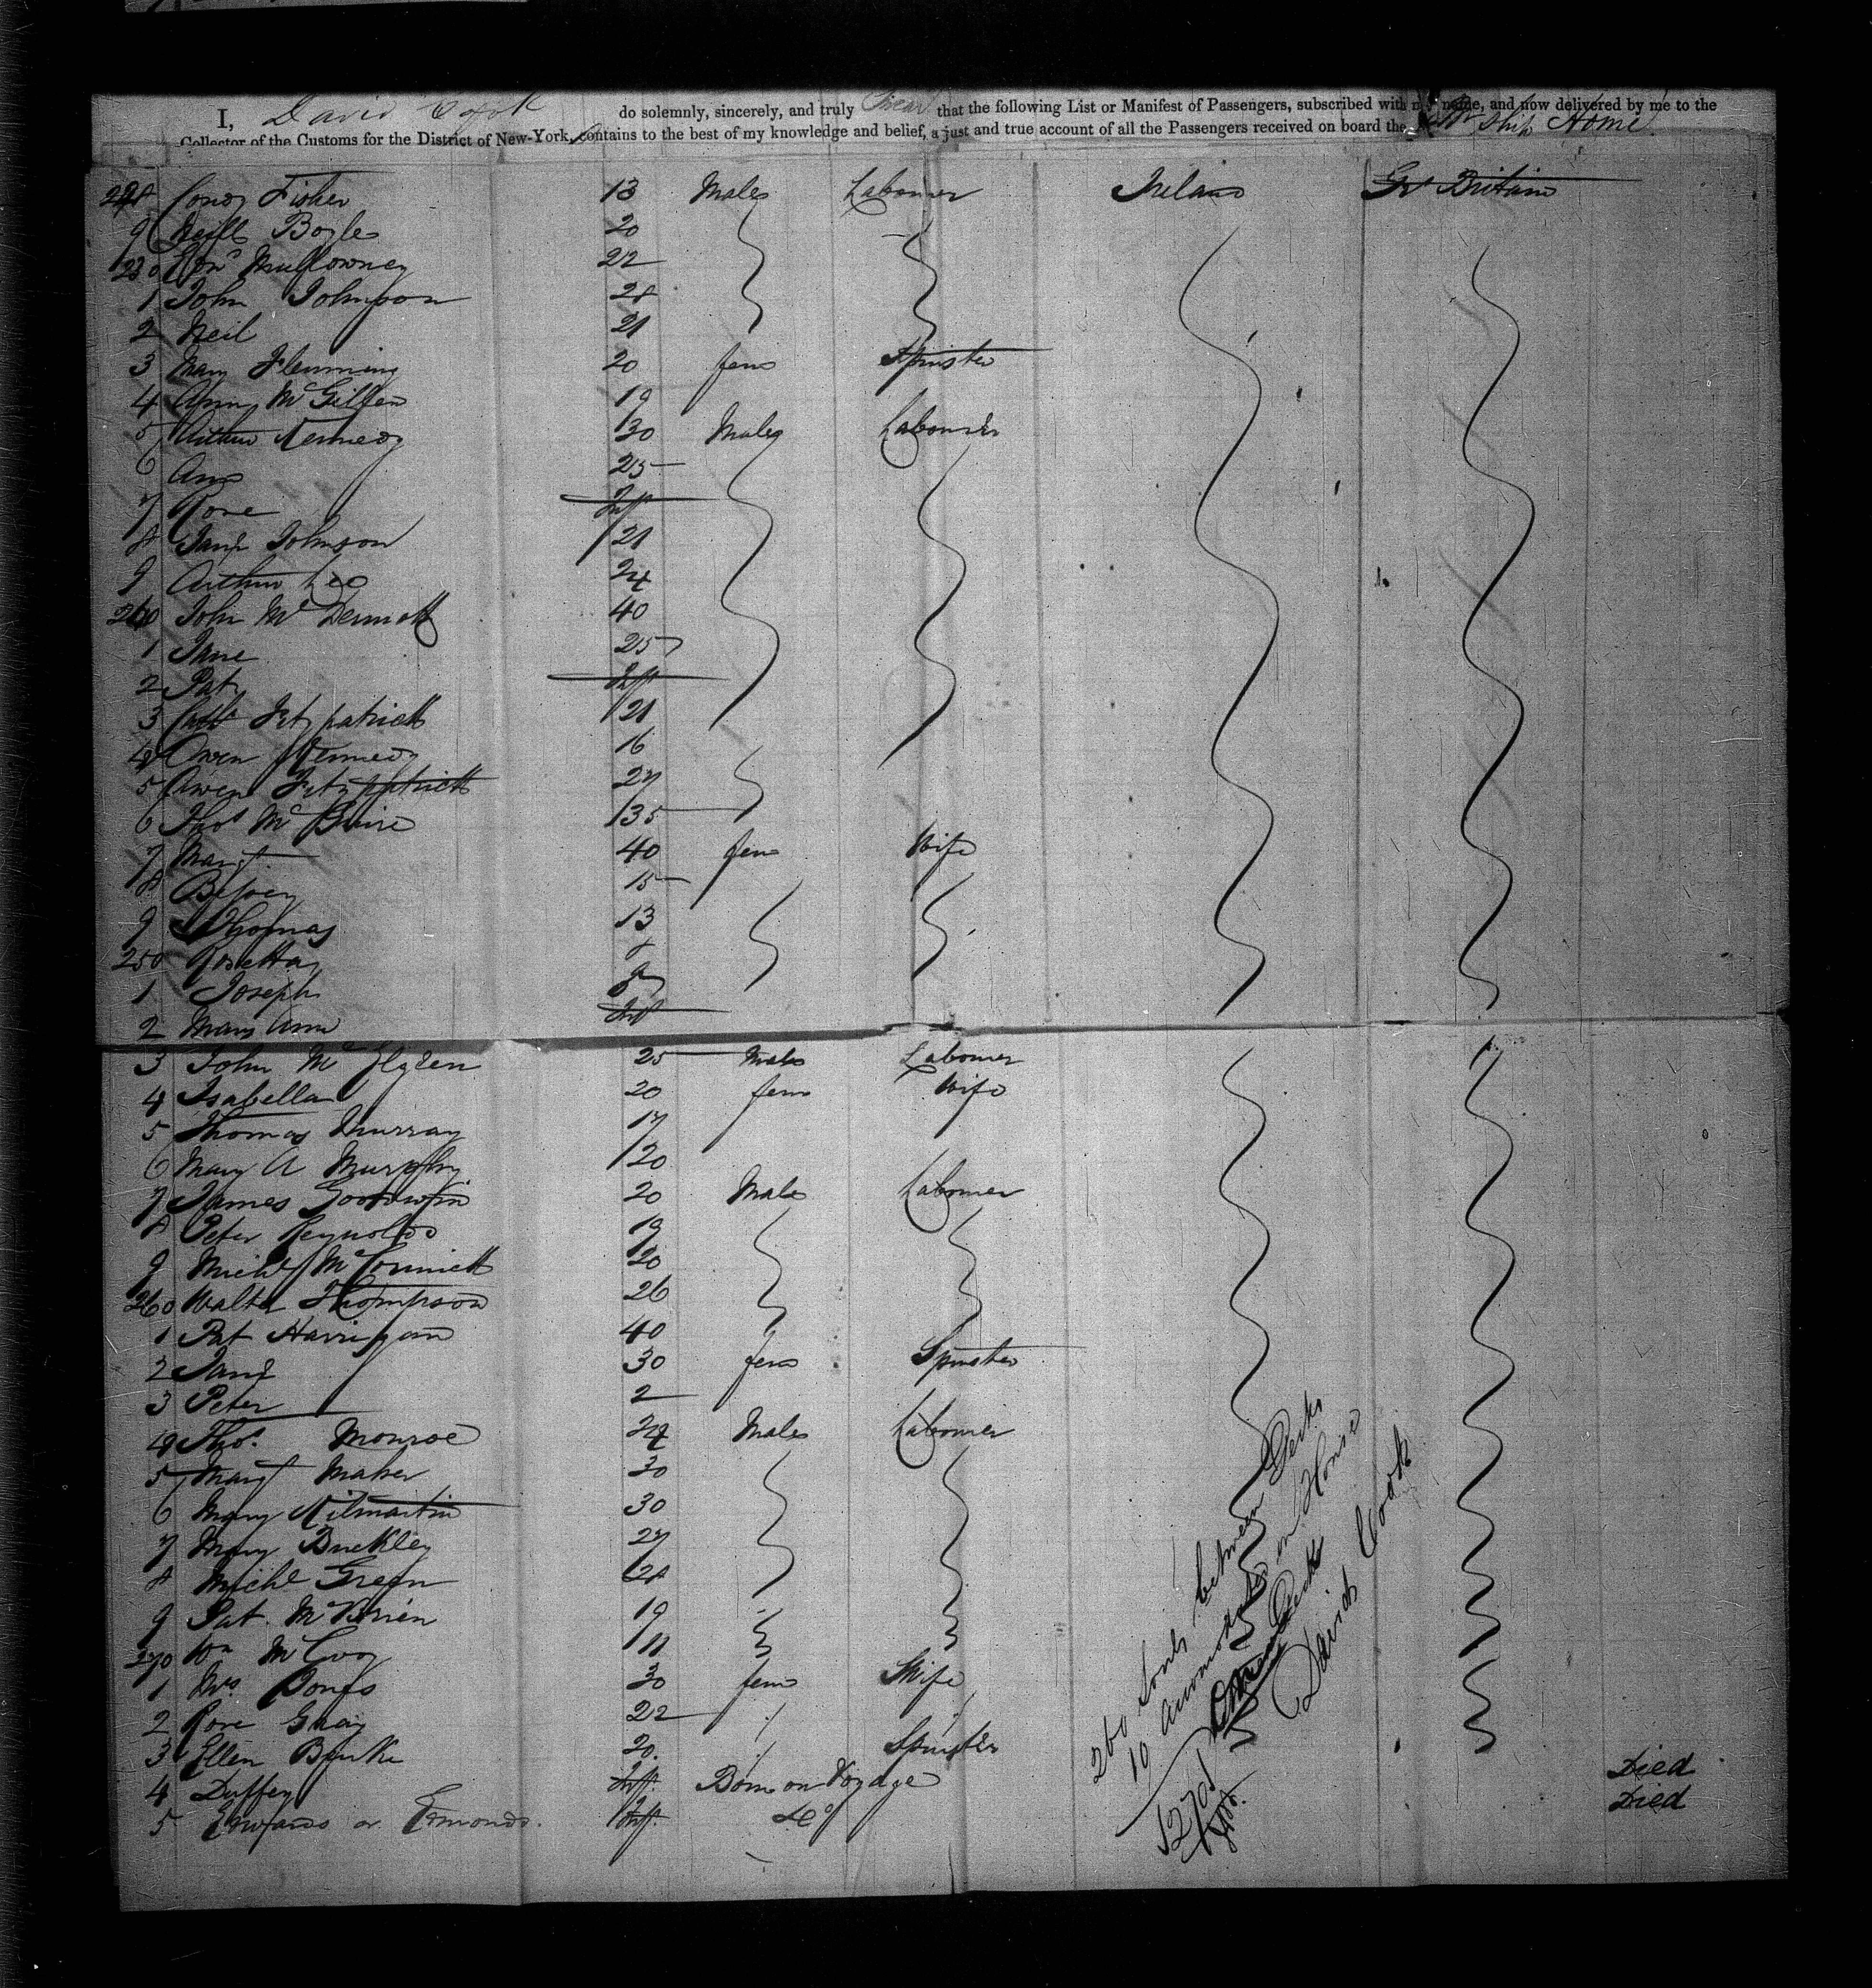 I, David Cook do solemnly, sincerely, and truly Swear that the following List or Manifest of Passengers, subscribed with my name, and now delivered by me to the
Collector of the Customs for the District of New-York, contains to the best of my knowledge and belief, a just and true account of all the Passengers received on board the Ship Home
Fisher 13 Males Labourer Ireland Gt Britain
9 Neill Boyle 20
230 Mullowney 22
1 John Johnson 28
2 Neil 21
3 Mary Flemming 20 fem Spinster
4 Ann McGillen 19
5 Arthur Kennedy 30 Males Labourer
6 Ann 25
7 Rose Inft
8 Jane Johnson 21
9 Arthur Leo 24
240 John McDermott 40
1 Jane 25
2 Pat Inft
3 Cath Fitzpatrick 21
4 Owen Kennedy 16
5 Owen Fitzpatrick 27
6 Thos McGuire 35
7 Margt 40 fem Wife
8 Betsey 15
9 Thomas 13
250 Rosetta 8
1 Joseph
2 Mary Ann Inft
3 John 25 Males Labourer
4 Isabella 20 fem Wife
5 Thomas Murray 17
6 Mary A Murphy 20
7 James Goodwin 20 Males Labourer
8 Peter Reynolds 19
9 Michl McCormick 20
260 Walter Thompson 26
1 Pat Harrigan 40
2 Jane 30 fem Spinster
3 Peter 2
4 Thos. Monroe 24 Males Labourer
5 Margt Maher 30
6 Mary Kilmartin 30
7 Mary Buckley 27
8 Michl Green 28
9 Pat McBrien 19
270 Wm McCoy 18
1 Mrs Jones 30 fem Wife
2 Rose Gray 22
3 Ellen Burke 20. Spinster
4 Duffey Inft. Born on Voyage Died
5 Edwards or Edmonds. Inft. Do Died
260 Souls between Decks
10 Accomodated in House
on Decks
270
David Cook